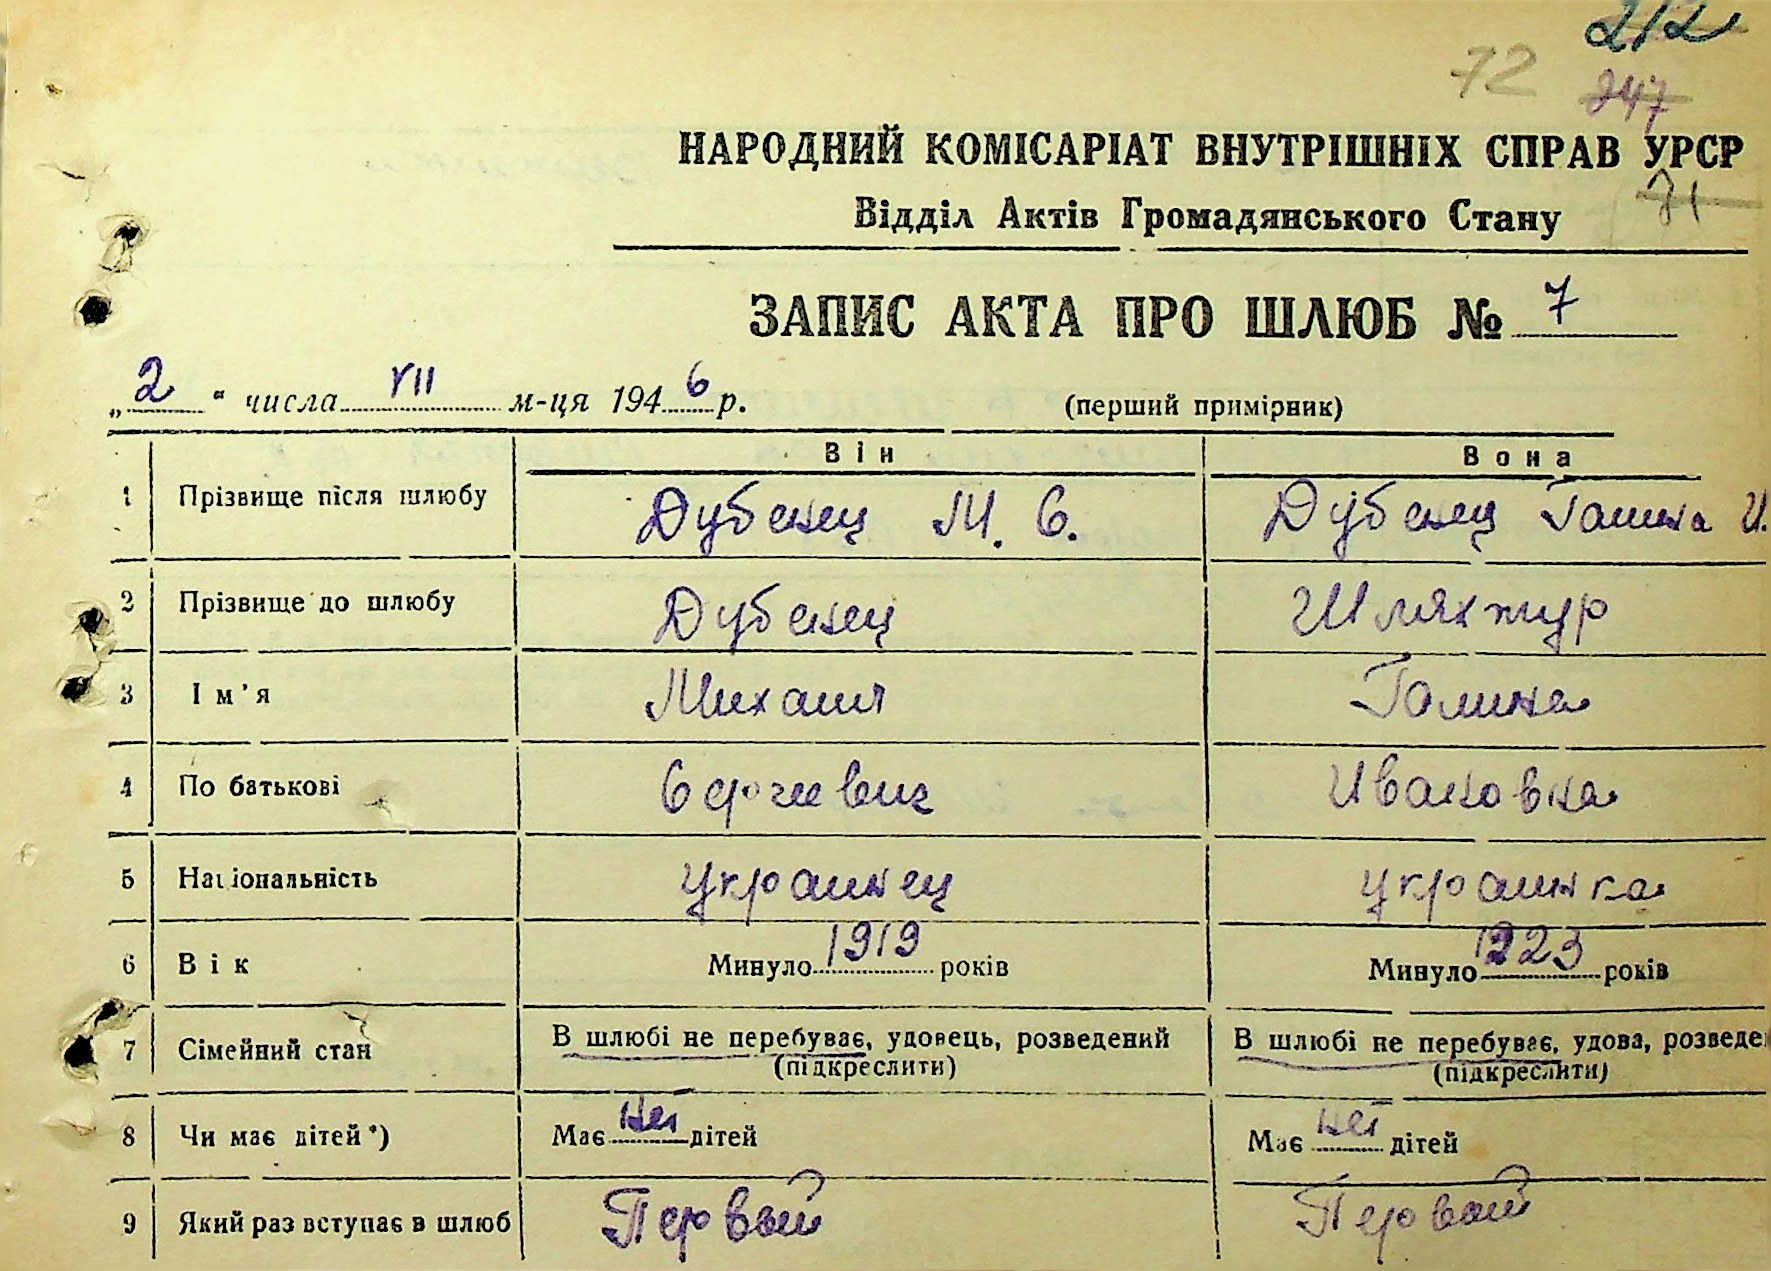 212
72 247
НАРОДНИЙ КОМІСАРІАТ ВНУТРІШНІХ СПРАВ УРСР
71
Відділ Актів Громадянського Стану
ЗАПИС АКТА ПРО ШЛЮБ № 7
„2“ числа VII м-ця 1946 р. (перший примірник)
Він Вона
1 Прізвище після шлюбу Дубенец М. С. Дубенец Галина И.
2 Прізвище до шлюбу Дубенец Шляхтур
3 Ім'я Михаил Галина
4 По батькові Сергеевич Ивановна
5 Національність украинец украинка
6 Вік Минуло 1919 років Минуло 1923 років
7 Сімейний стан В шлюбі не перебуває, удовець, розведений В шлюбі не перебуває, удова, розведе
(підкреслити) (підкреслити)
8 Чи має дітей*) Має нет дітей Має нет дітей
9 Який раз вступає в шлюб Первый Первый